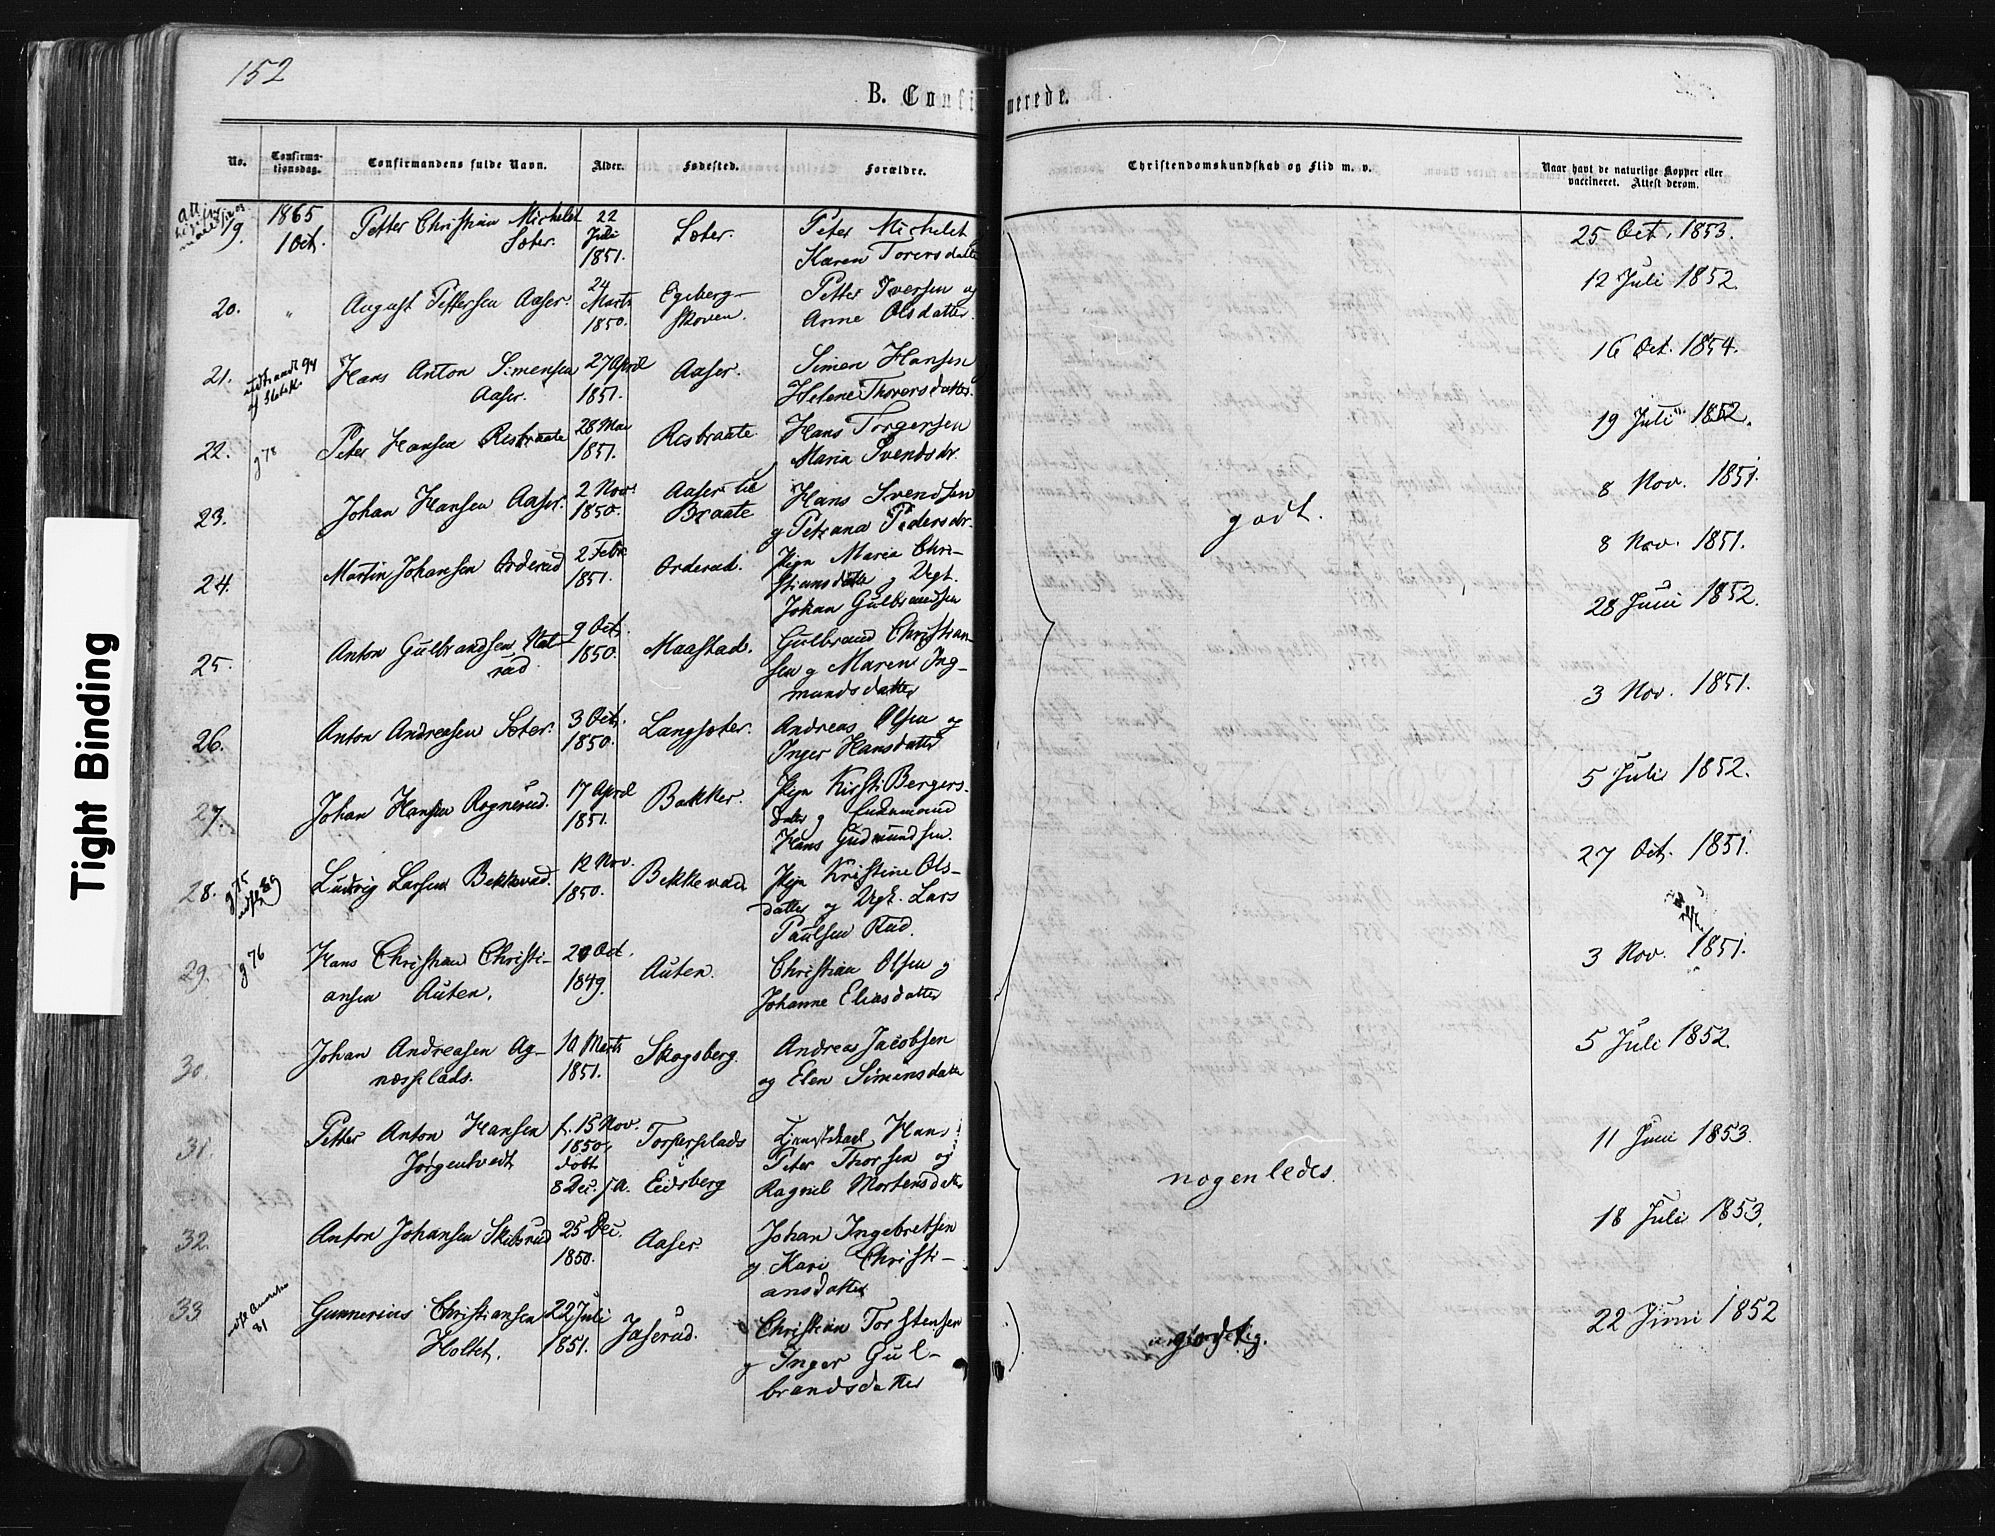 152
B. Confirmerede.
No. Confirmationsdag. Confirmandens fulde Navn. Alder. Fødested. Forældre. Christendomskundskab og Flid m. v. Naar havt de naturlige Kopper eller vaccineret. Attest derom.
19. 1865 1 Oct. Petter Christian Michelet Sæter. 22 Juli 1851. Sæter. Peter Michelet Karen Torersdatter 25 Oct. 1853.
20. " August Pettersen Aaser. 24 Marts 1850. Egeberg-skoven. Petter Iversen og Anne Olsdatter. 12 Juli 1852.
21. Hans Anton Simensen Aaser. 27 April 1851. Aaser. Simen Hansen Helene Thoversdatter. 16 Oct. 1854.
22. g 78 Peter Hansen Risbraate 28 Mai 1851. Risbraate. Hans Torgersen Maria Svendsdr. 19 Juli 1852.
23. Johan Hansen Aaser. 2 Nov. 1850. Aaser til Braate Hans Svendsen g Petriana Pedersdr. godt. 8 Nov. 1851.
24. Martin Johansen Orderud 2 Febr. 1851. Orderud. Pign Maria Chri-stiansdatter g Ungk. Johan Gulbrandsen 8 Nov. 1851.
25. Anton Gulbrandsen 9 Oct. 1850. Maastad. Gulbrand Christian-sen g Maren Ing-mundsdatter 28 Juni 1852.
26. Anton Andreasen Sæter. 3 Oct. 1850. Langsæter. Andreas Olsen og Inger Hansdatter 3 Nov. 1851.
27. Johan Hansen Rognerud. 17 April 1851. Bakker. Pign Kirsti Bergers-datter g Enkemand Hans Gudmundsen. 5 Juli 1852.
28. g 75 Ludvig Larsen Bekkevad. 12 Nov. 1850. Bekkevad Pign Kristine Ols-datter og Ungk. Lars Paulsen Rud. 27 Oct. 1851.
29. g 76 Hans Christian Christi-ansen Auten. 20 Oct. 1849. Auten. Christian Olsen g Johanne Eliasdatter 3 Nov. 1851.
30. Johan Andreasen Ag-næsplads. 10 Marts 1851. Skogsberg. Andreas Jacobsen og Elen Simensdatter 5 Juli 1852.
31. Petter Anton Hansen Jørgentvedt f. 15 Nov. 1850, døbt 8 Dec. s. A. Torperplads Eidsberg Hans Peter Thorsen og Ragnil Mortensdatter nogenledes. 11 Juni 1853.
32. Anton Johansen Skibsrud 25 Dec. 1850. Aaser. Johan Ingebretsen g. Kari Christi-ansdatter 18 Juli 1853.
33 81 Gunnerius Christiansen Holtet. 22 Juli 1851. Jaserud. Christian Torstensen g Inger Gul-brandsdatter 22 Juni 1852
Tight Binding